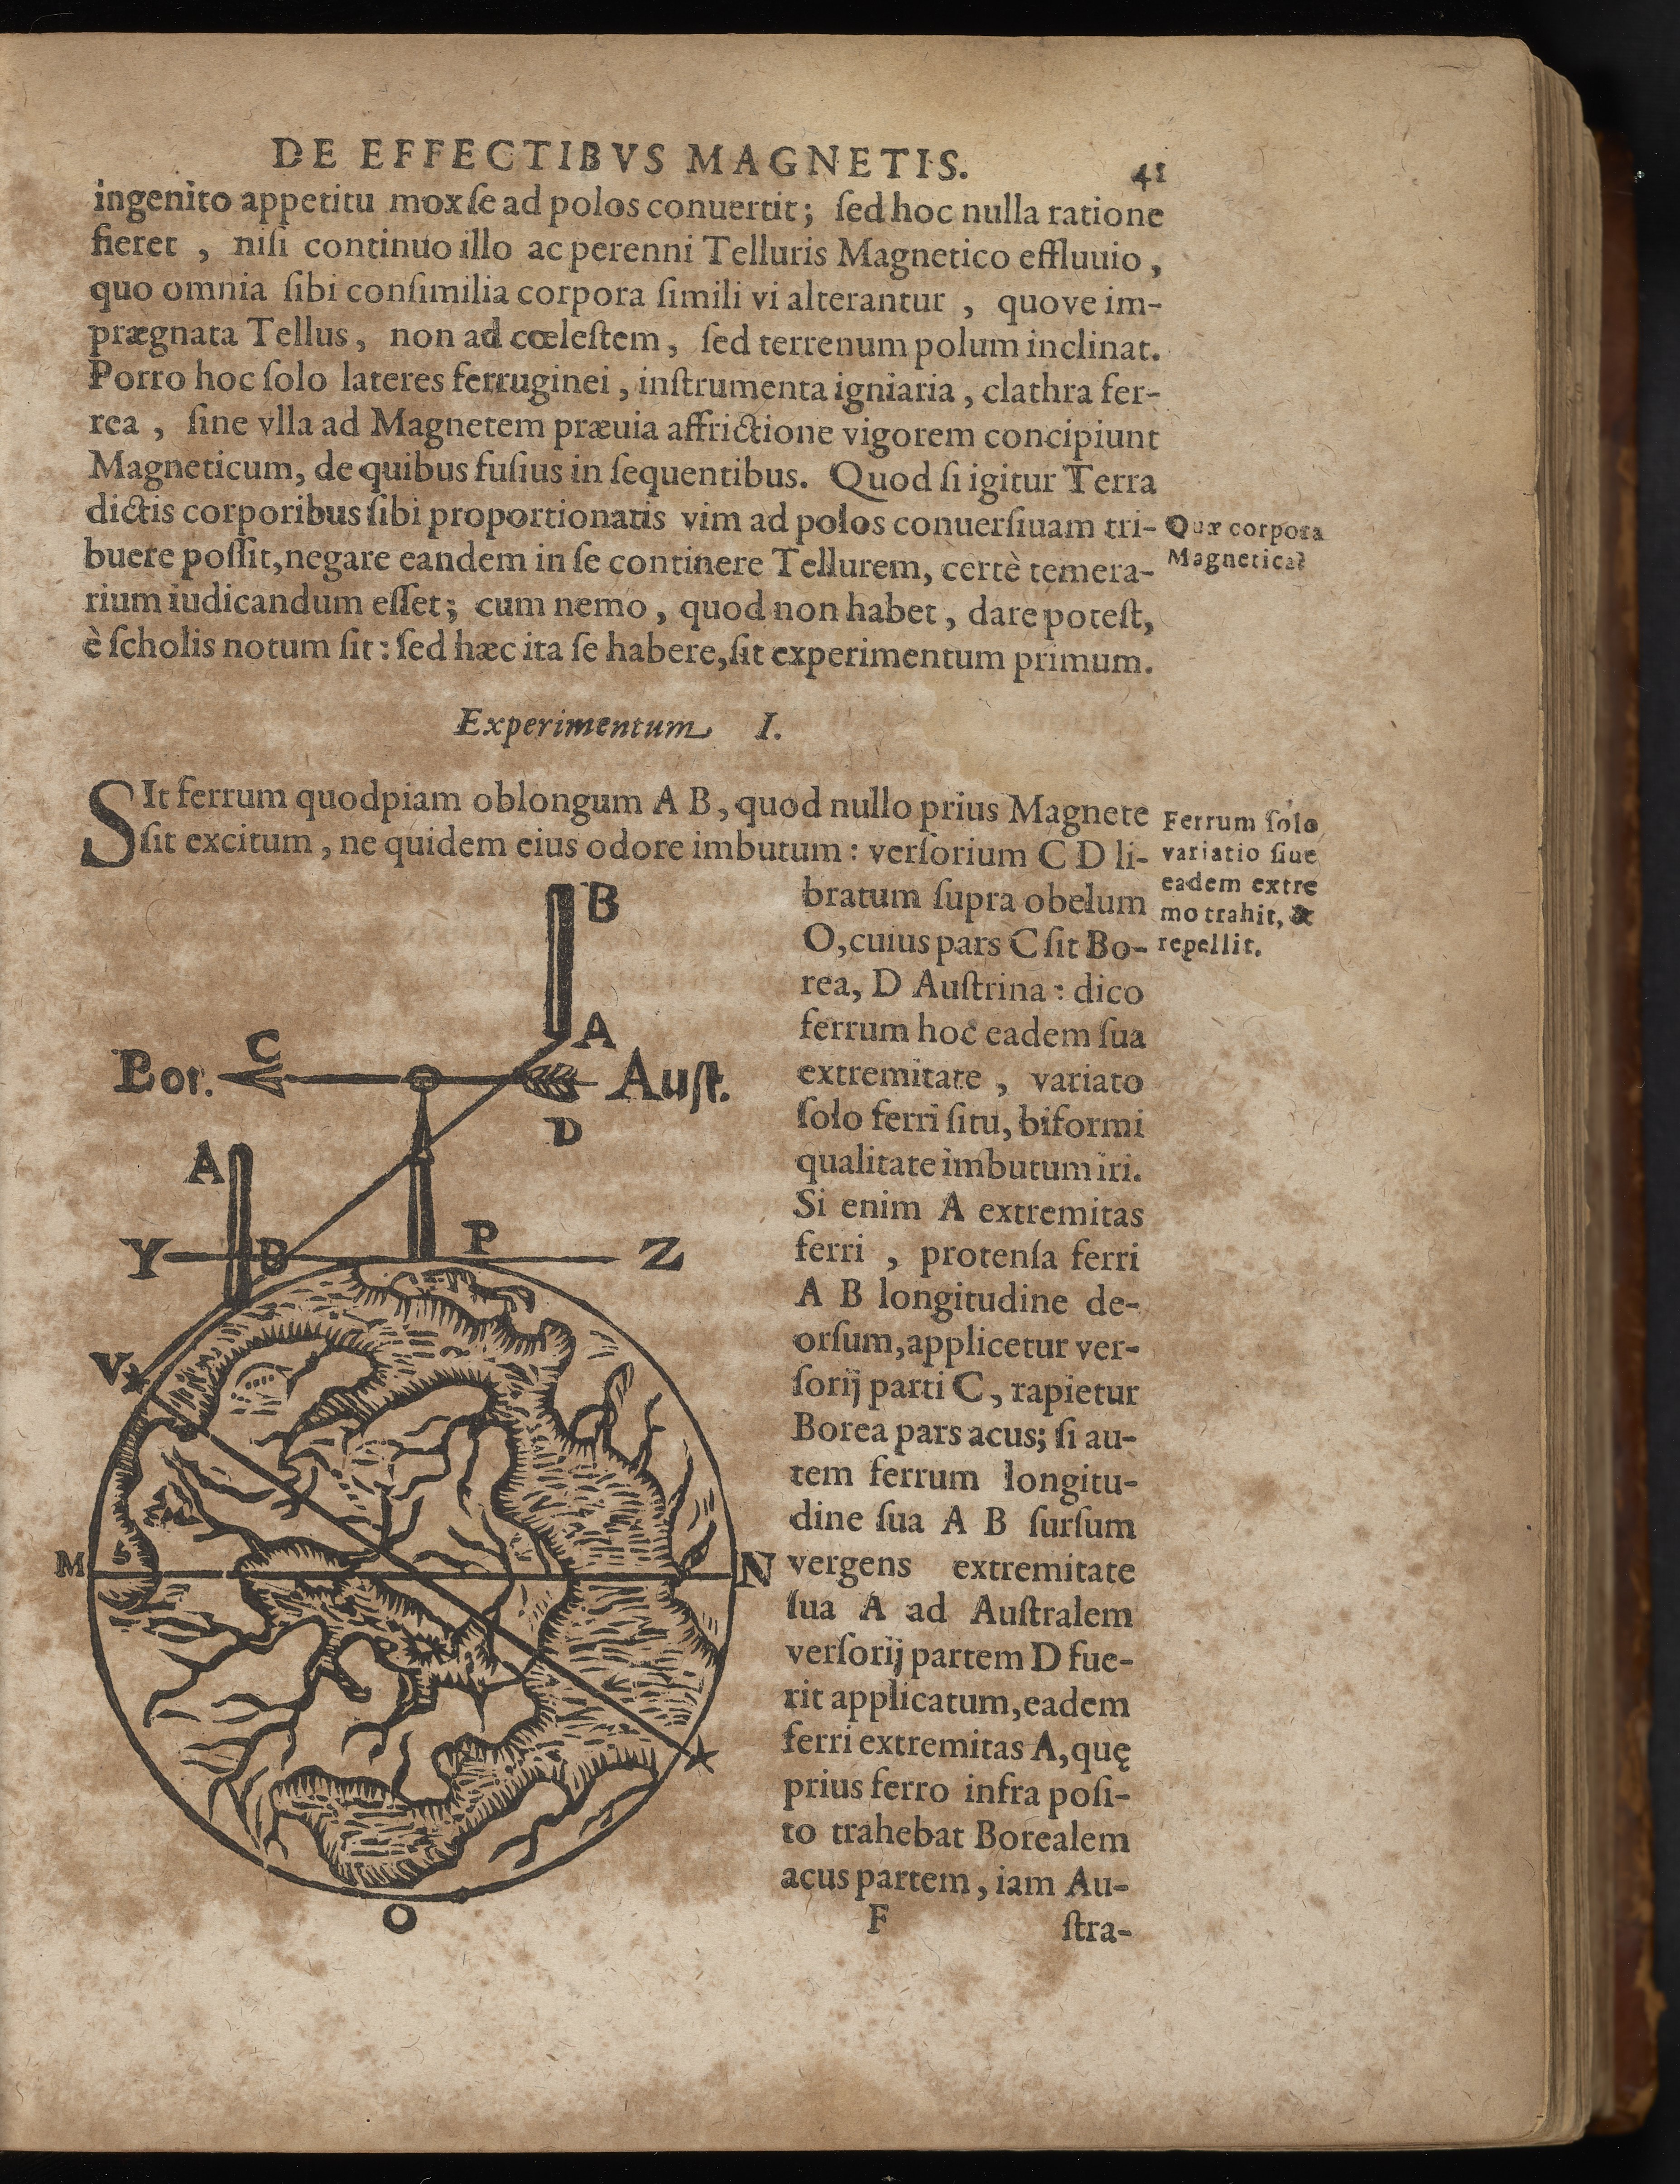 DE EFFECTIBVS MAGNETIS. 41
ingenito appetitu mox ſe ad polos conuertit; ſed hoc nulla ratione
fieret , niſi continuo illo ac perenni Telluris Magnetico effluuio ,
quo omnia ſibi conſimilia corpora ſimili vi alterantur , quove im-
prægnata Tellus, non ad cœleſtem, ſed terrenum polum inclinat.
Porro hoc ſolo lateres ferruginei, inſtrumenta igniaria, clathra fer-
rea , ſine vlla ad Magnetem præuia affrictione vigorem concipiunt
Magneticum, de quibus fuſius in ſequentibus. Quod ſi igitur Terra
dictis corporibus ſibi proportionatis vim ad polos conuerſiuam tri-
buere poſſit, negare eandem in ſe continere Tellurem, certè temera-
rium iudicandum eſſet; cum nemo, quod non habet, dare poteſt,
è ſcholis notum ſit: ſed hæc ita ſe habere, ſit experimentum primum.
Quæ corpora
Magnetica?
Experimentum I.
SIt ferrum quodpiam oblongum A B, quod nullo prius Magnete
ſit excitum, ne quidem eius odore imbutum: verſorium C D li-
bratum ſupra obelum
O, cuius pars C ſit Bo-
rea, D Auſtrina: dico
ferrum hoc eadem ſua
extremitate , variato
ſolo ferri ſitu, biformi
qualitate imbutum iri.
Si enim A extremitas
ferri , protenſa ferri
A B longitudine de-
orſum, applicetur ver-
ſorij parti C, rapietur
Borea pars acus; ſi au-
tem ferrum longitu-
dine ſua A B ſurſum
vergens extremitate
ſua A ad Auſtralem
verſorij partem D fue-
rit applicatum, eadem
ferri extremitas A, quę
prius ferro infra poſi-
to trahebat Borealem
acus partem, iam Au-
F ſtra-
Ferrum ſolo
variatio ſiue
eadem extre
mo trahit, &
repellit.
B
A
C
Bor. Auſt.
D
A
Y B P Z
V
M S N
O